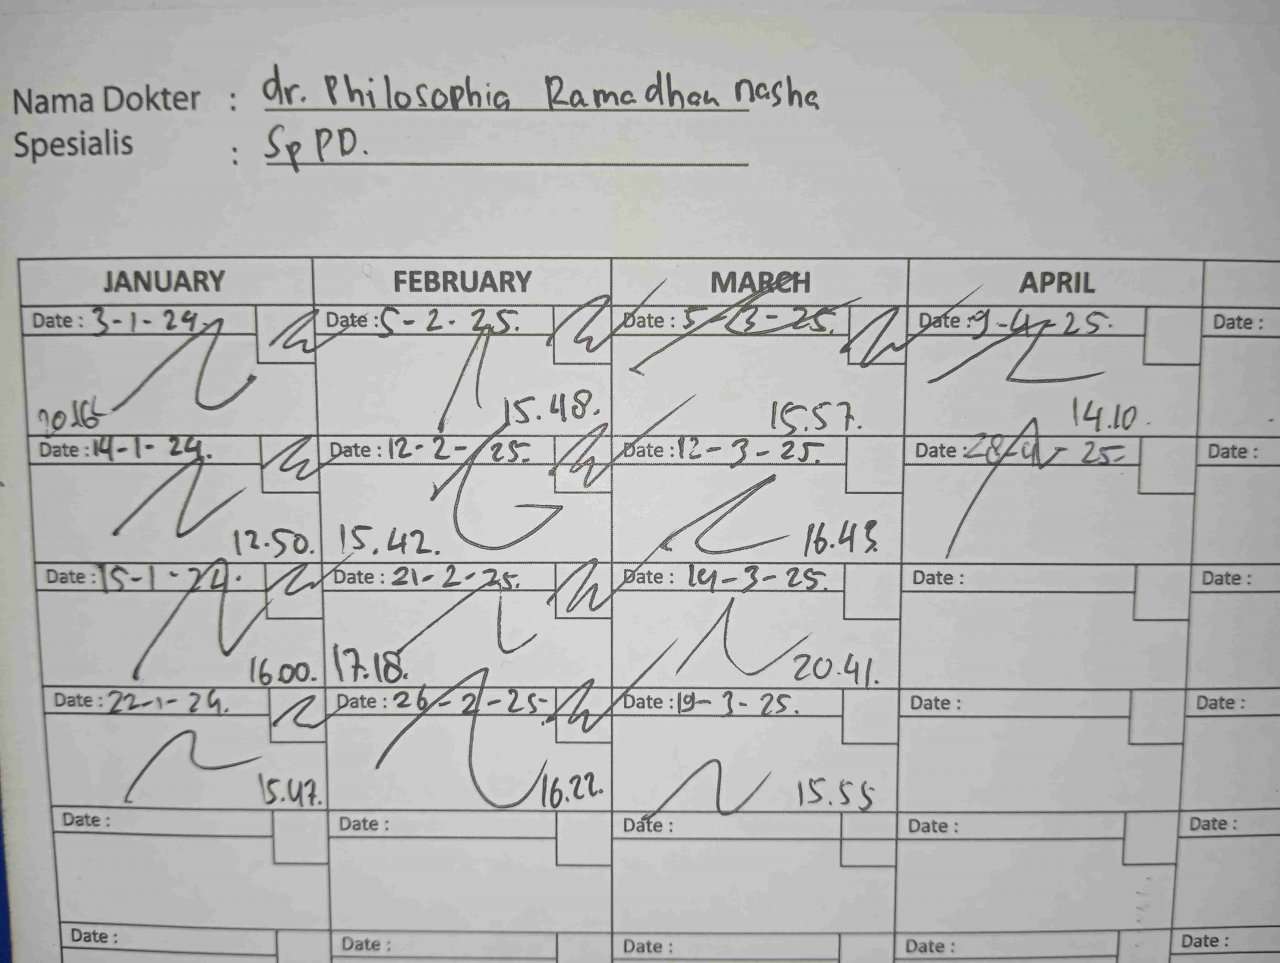 Nama Dokter : dr. Philosophia Ramadhan nasha
Spesialis : Sp PD.
JANUARY FEBRUARY MARCH APRIL
Date : 3-1-24. Date : 5-2-25. Date : 5-3-25. Date : 9-4-25. Date :
15.48. 15.57. 14.10
Date : 14-1-24. Date : 12-2-25. Date : 12-3-25. Date : 25- Date :
12.50. 15.42. 16.43.
Date : 15-1-24. Date : 21-2-25. Date : 14-3-25. Date : Date :
16.00. 17.18. 20.41.
Date : 22-1-24. Date : 26-2-25- Date : 19-3-25. Date : Date :
15.47. 16.22. 15.55
Date : Date : Date : Date : Date :
Date : Date : Date : Date : Date :